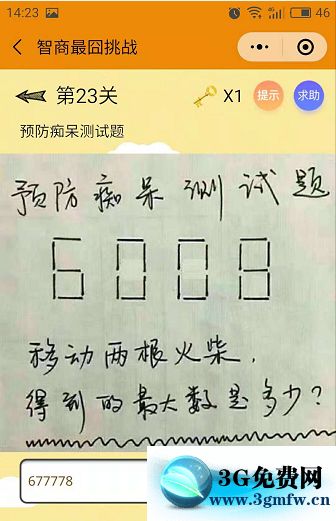 14:23 4G 46
智商最囧挑战
第23关 X1 提示 求助
预防痴呆测试题
预防痴呆测试题
6008
移动两根火柴，
得到的最大数是多少？
677778
3G免费网
www.3gmfw.cn